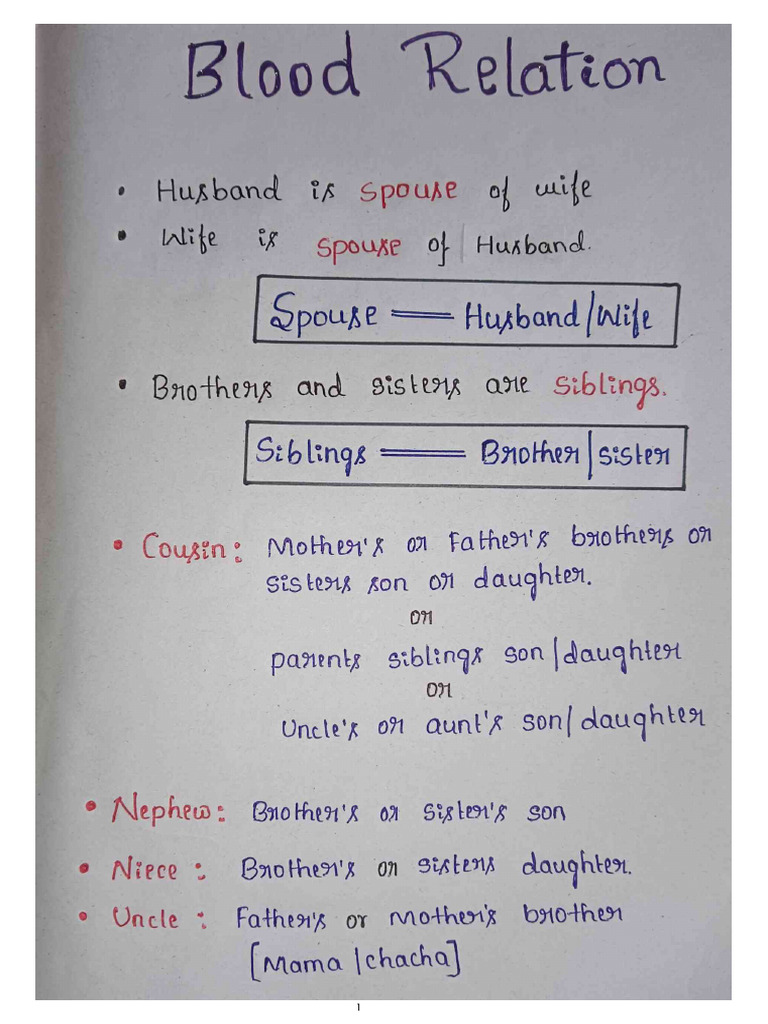 Blood Relation
• Husband is spouse of wife
• Wife is spouse of Husband.
Spouse == Husband/Wife
• Brothers and sisters are siblings.
Siblings == Brother|sister
• Cousin: Mother's or Father's brothers or
sisters son or daughter.
or
parents siblings son/daughter
or
Uncle's or aunt's son/daughter
• Nephew: Brother's or sister's son
• Niece: Brother's or sisters daughter.
• Uncle: Father's or Mother's brother
[Mama/chacha]
1